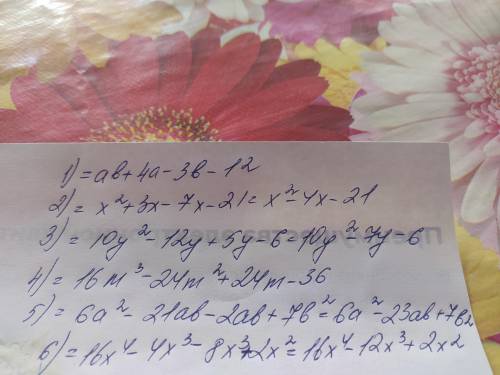 1) = ab + 4a - 3b - 12
2) = x² + 3x - 7x - 21 = x² - 4x - 21
3) = 10y² - 12y + 5y - 6 = 10y² - 7y - 6
4) = 16m³ - 24m² + 24m - 36
5) = 6a² - 21ab - 2ab + 7b² = 6a² - 23ab + 7b2
6) = 16x⁴ - 4x³ - 8x³ + 2x² = 16x⁴ - 12x³ + 2x2